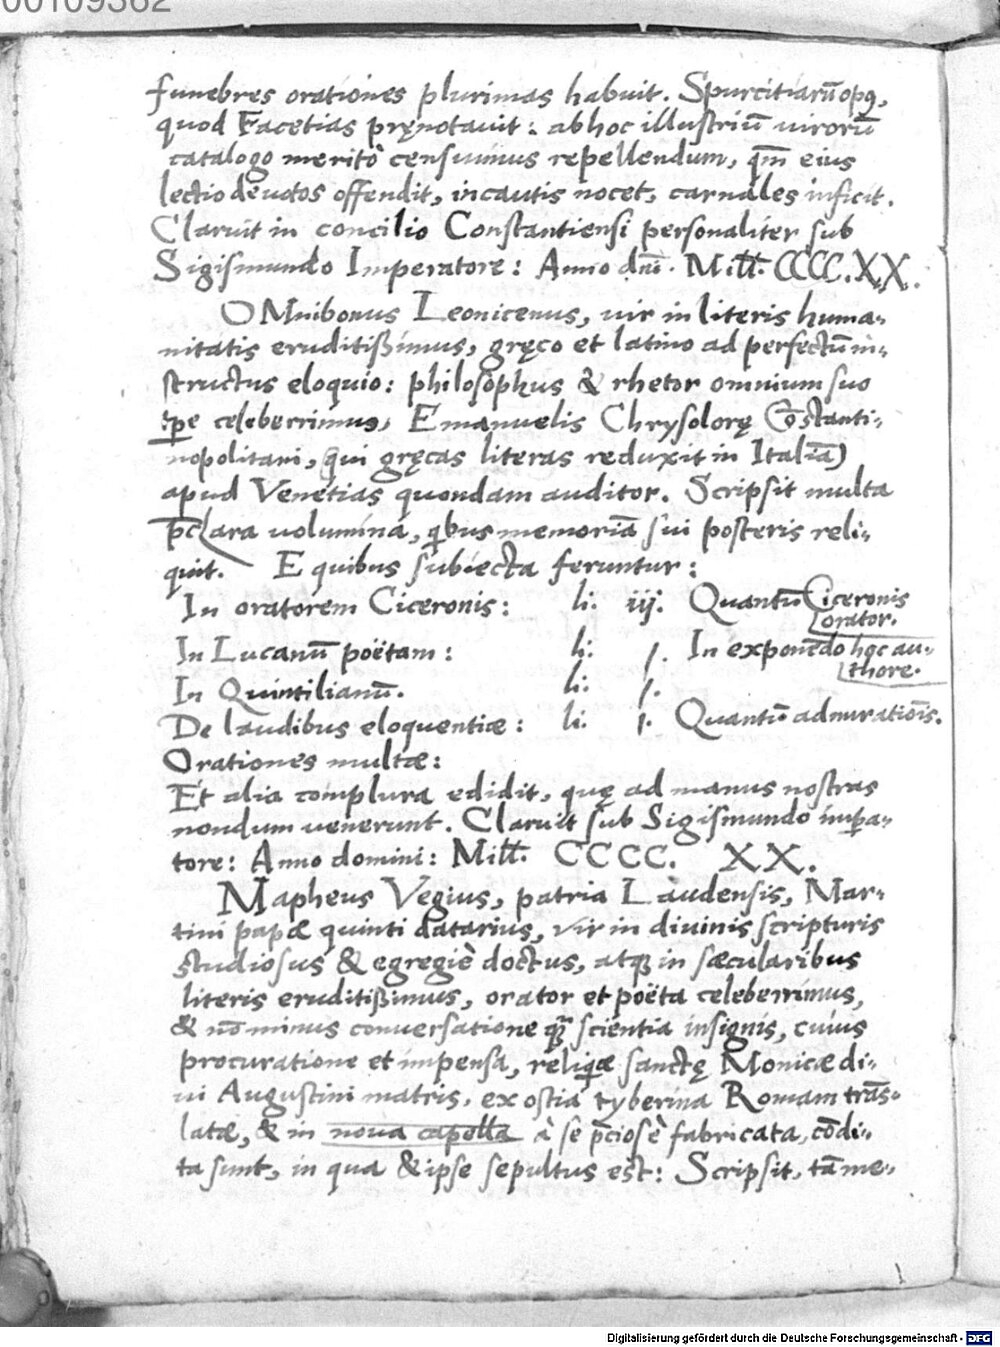 00109362
funebres orationes plurimas habuit. Spurcitiarū opꝰ,
quod Facetias pręnotauit: ab hoc illustriū virorū
catalogo meritò censuimus repellendum, qm̄ eius
lectio deuotos offendit, incautis nocet, carnales inficit.
Claruit in concilio Constantiensi personaliter sub
Sigismundo Imperatore: Anno dnī. Mill. CCCC.XX.
OMnibonus Leonicenus, vir in literis huma-
nitatis eruditißimus, gręco et latino ad perfectū in-
structus eloquio: philosophus & rhetor omnium suo
tꝑe celeberrimus, Emanuelis Chrysolorę Cōstanti-
nopolitani, (qui gręcas literas reduxit in Italiā)
apud Venetias quondam auditor. Scripsit multa
p̄clara volumina, qibus memoriā sui posteris reli-
quit. E quibus subiecta feruntur:
In oratorem Ciceronis: li. iij. Quantū Ciceronis
orator.
In Lucanū poëtam: li. j. In exponēdo hoc au-
thore.
In Quintilianū. li. j.
De laudibus eloquentiæ: li. j. Quantū admirationis.
Orationes multæ:
Et alia complura edidit, quę ad manus nostras
nondum venerunt. Claruit sub Sigismundo impa-
tore: Anno domini: Mill. CCCC. XX.
Mapheus Vegius, patria Laudensis, Mar-
tini papæ quinti datarius, vir in diuinis scripturis
studiosus & egregiè doctus, atqꝫ in sæcularibus
literis eruditißimus, orator et poëta celeberrimus,
& nō minus conuersatione qꝫ scientia insignis, cuius
procuratione et impensa, reliqiæ sanctę Monicæ di-
ui Augustini matris, ex ostia tyberina Romam trās-
latæ, & in noua capella à se p̄ciosè fabricata, cōdi-
ta sunt, in qua & ipse sepultus est: Scripsit, tā me-
Digitalisierung gefördert durch die Deutsche Forschungsgemeinschaft - DFG